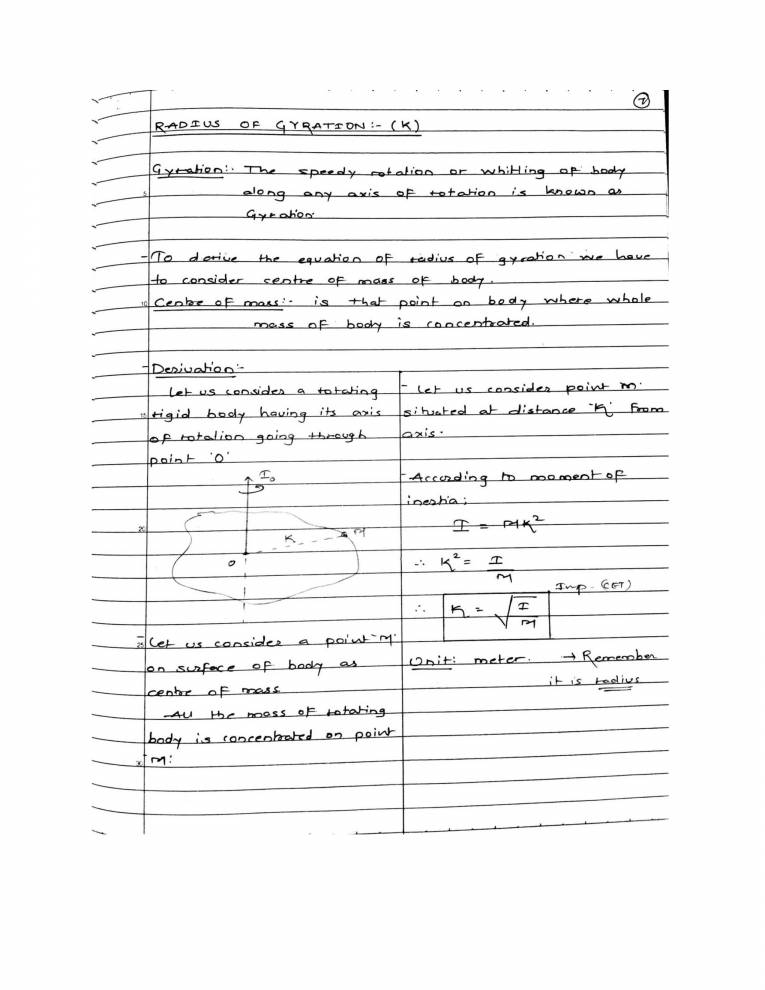 7
RADIUS OF GYRATION:- (K)
Gyration:- The speedy rotation or whirling of body
along any axis of rotation is known as
Gyration
- To derive the equation of radius of gyration we have
to consider centre of mass of body.
Centre of mass:- is that point on body where whole
mass of body is concentrated.
- Derivation:-
Let us consider a rotating
rigid body having its axis
of rotation going through
point 'O'
I₀
K
M
O
Let us consider a point 'M'
on surface of body as
centre of mass
- All the mass of rotating
body is concentrated on point
M:
- Let us consider point M.
situated at distance 'K' from
axis.
- According to moment of
inertia;
I = MK²
∴ K² = I/M
Imp - (CET)
∴ K = √(I/M)
Unit: meter. → Remember
it is radius
5
10
15
20
25